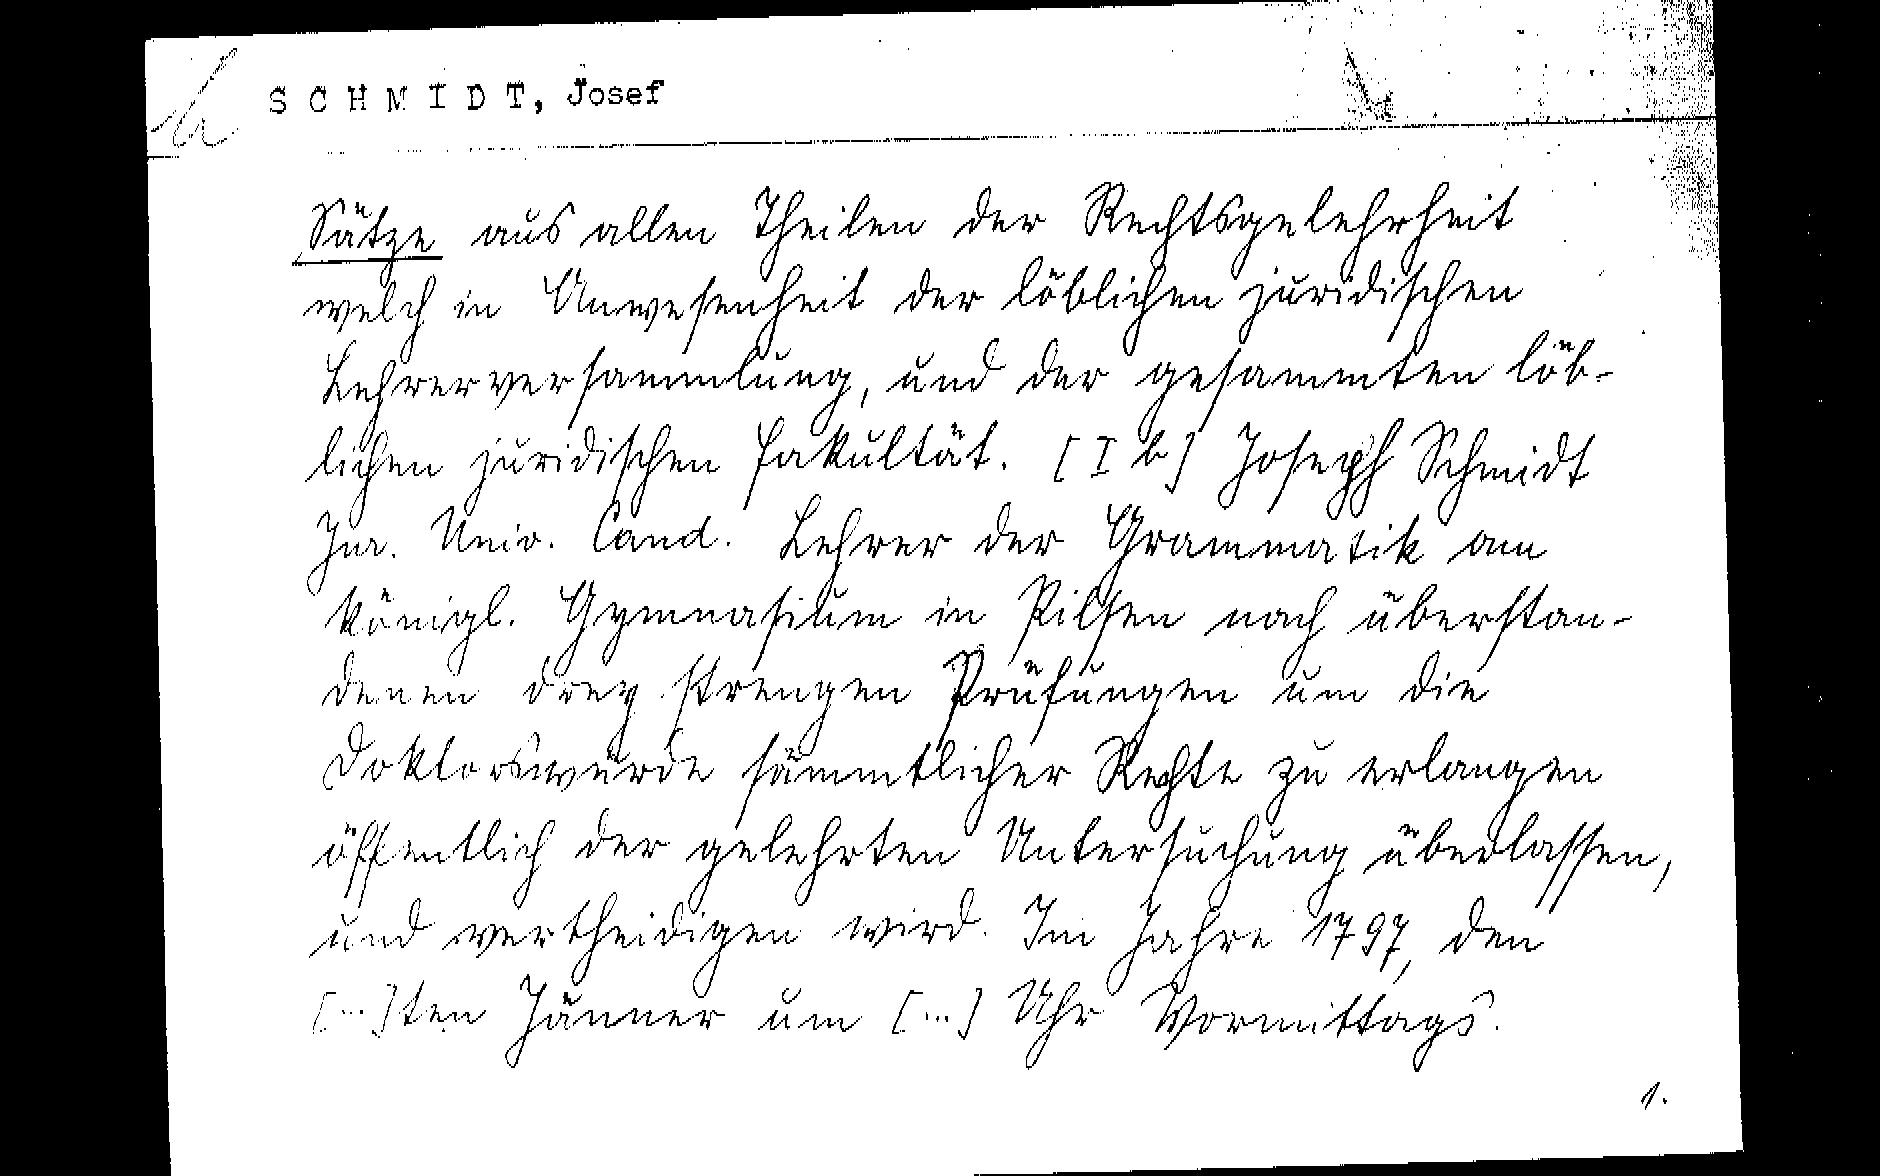 SCHMIDT, Josef
Sätze aus allen Theilen der Rechtsgelehrheit
welch in Anwesenheit der löblichen juridischen
Lehrerversammlung, und der gesammten löb-
lichen juridischen Fakultät. [I b] Joseph Schmidt
Jur. Univ. Cand. Lehrer der Grammatik am
königl. Gymnasium in Pilsen nach überstan-
denen drey strengen Prüfungen um die
Doktorswürde sämmtlicher Rechte zu erlangen
öffentlich der gelehrten Untersuchung überlassen,
und vertheidigen wird. Im Jahre 1797, den
[...]ten Jänner um [...] Uhr Vormittags.
1.